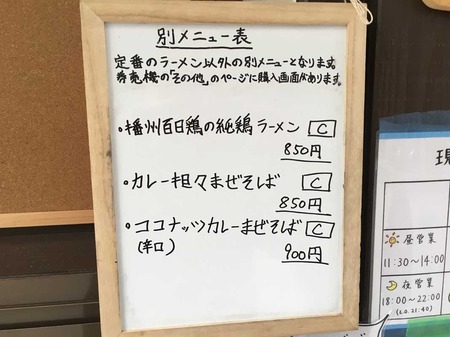 別メニュー表
定番のラーメン以外の別メニューとなります。
券売機の「その他」のページに購入画面があります。
・播州百日鶏の純鶏ラーメン C
850円
・カレー担々まぜそば C
850円
・ココナッツカレーまぜそば C
(辛口)
900円
現
昼営業
11:30～14:00
夜営業
18:00～22:00
(L.O. 21:40)